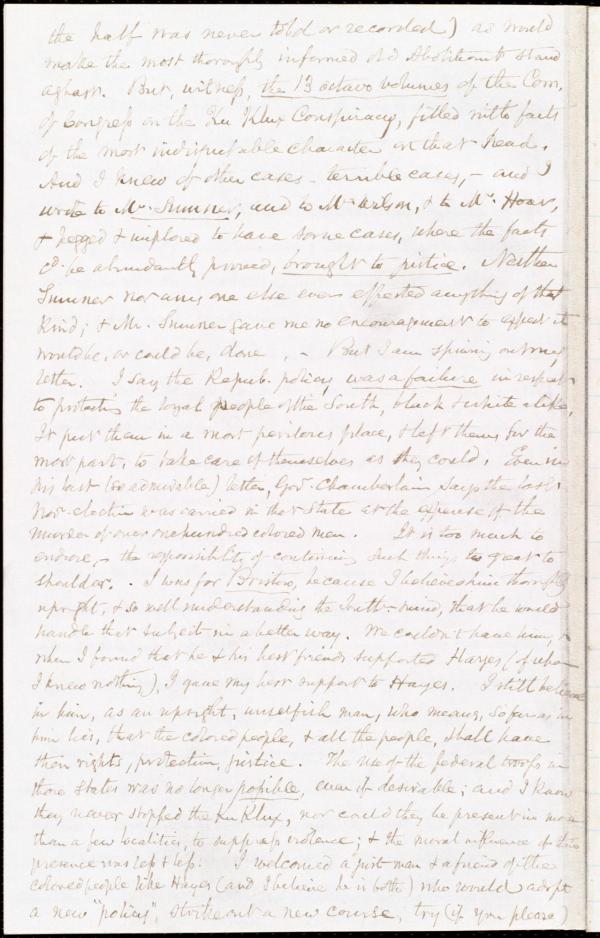 the half was never told or recorded) as would
make the most thoroughly informed old Abolitionist stand
aghast. But, witness, the 13 octavo volumes of the Com.
of Congress on the Ku Klux Conspiracy, filled with facts
of the most indisputable character on that head.
And I knew of other cases - terrible cases, - and I
wrote to Mr. Sumner, and to Mr. Wilson, & to Mr. Hoar,
& begged & implored to have some cases, where the facts
cd. be abundantly proved, brought to justice. Neither
Sumner nor any one else ever effected anything of that
kind; & Mr. Sumner gave me no encouragement to expect it
would be, or could be, done. - But I am spinning out my
letter. I say the Repub. policy was a failure in respect
to protecting the loyal people of the South, black & white alike,
It put them in a most perilous place, & left them, for the
most part, to take care of themselves as they could. Even in
his last (so admirable) letter, Gov. Chamberlain says the last
Nov. election was carried in that State at the expense of the
murder of over one hundred colored men. It is too much to
endure, - the responsibility of continuing such things too great to
shoulder. I was for Bristow, because I believe him thoroughly
upright, & so well understanding the South-mind, that he would
handle that subject in a better way. We couldn't have him, &
when I found that he & his best friends supported Hayes (of whom
I knew nothing), I gave my best support to Hayes. I still believe
in him, as an upright, unselfish man, who means, so far as in
him lies, that the colored people, & all the people, shall have
their rights, protection, justice. The use of the federal troops in
those States was no longer possible, even if desirable; and I know
they never stopped the Ku Klux, nor could they be present in more
than a few localities, to suppress violence; & the moral influence of their
presence was less & less. I welcomed a just man & a friend of the
colored people like Hayes (and I believe he is both) who would adopt
a new "policy", strike out a new course, try (if you please)